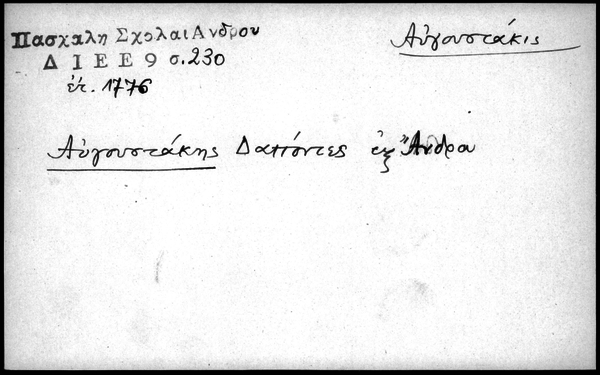 Πασχαλη Σχολαι Ανδρου
Αὐγουστάκις
Δ Ι Ε Ε 9 σ. 230
ἐτ. 1776
Αὐγουστάκης Δαπόντες ἐξ Ἄνδρα